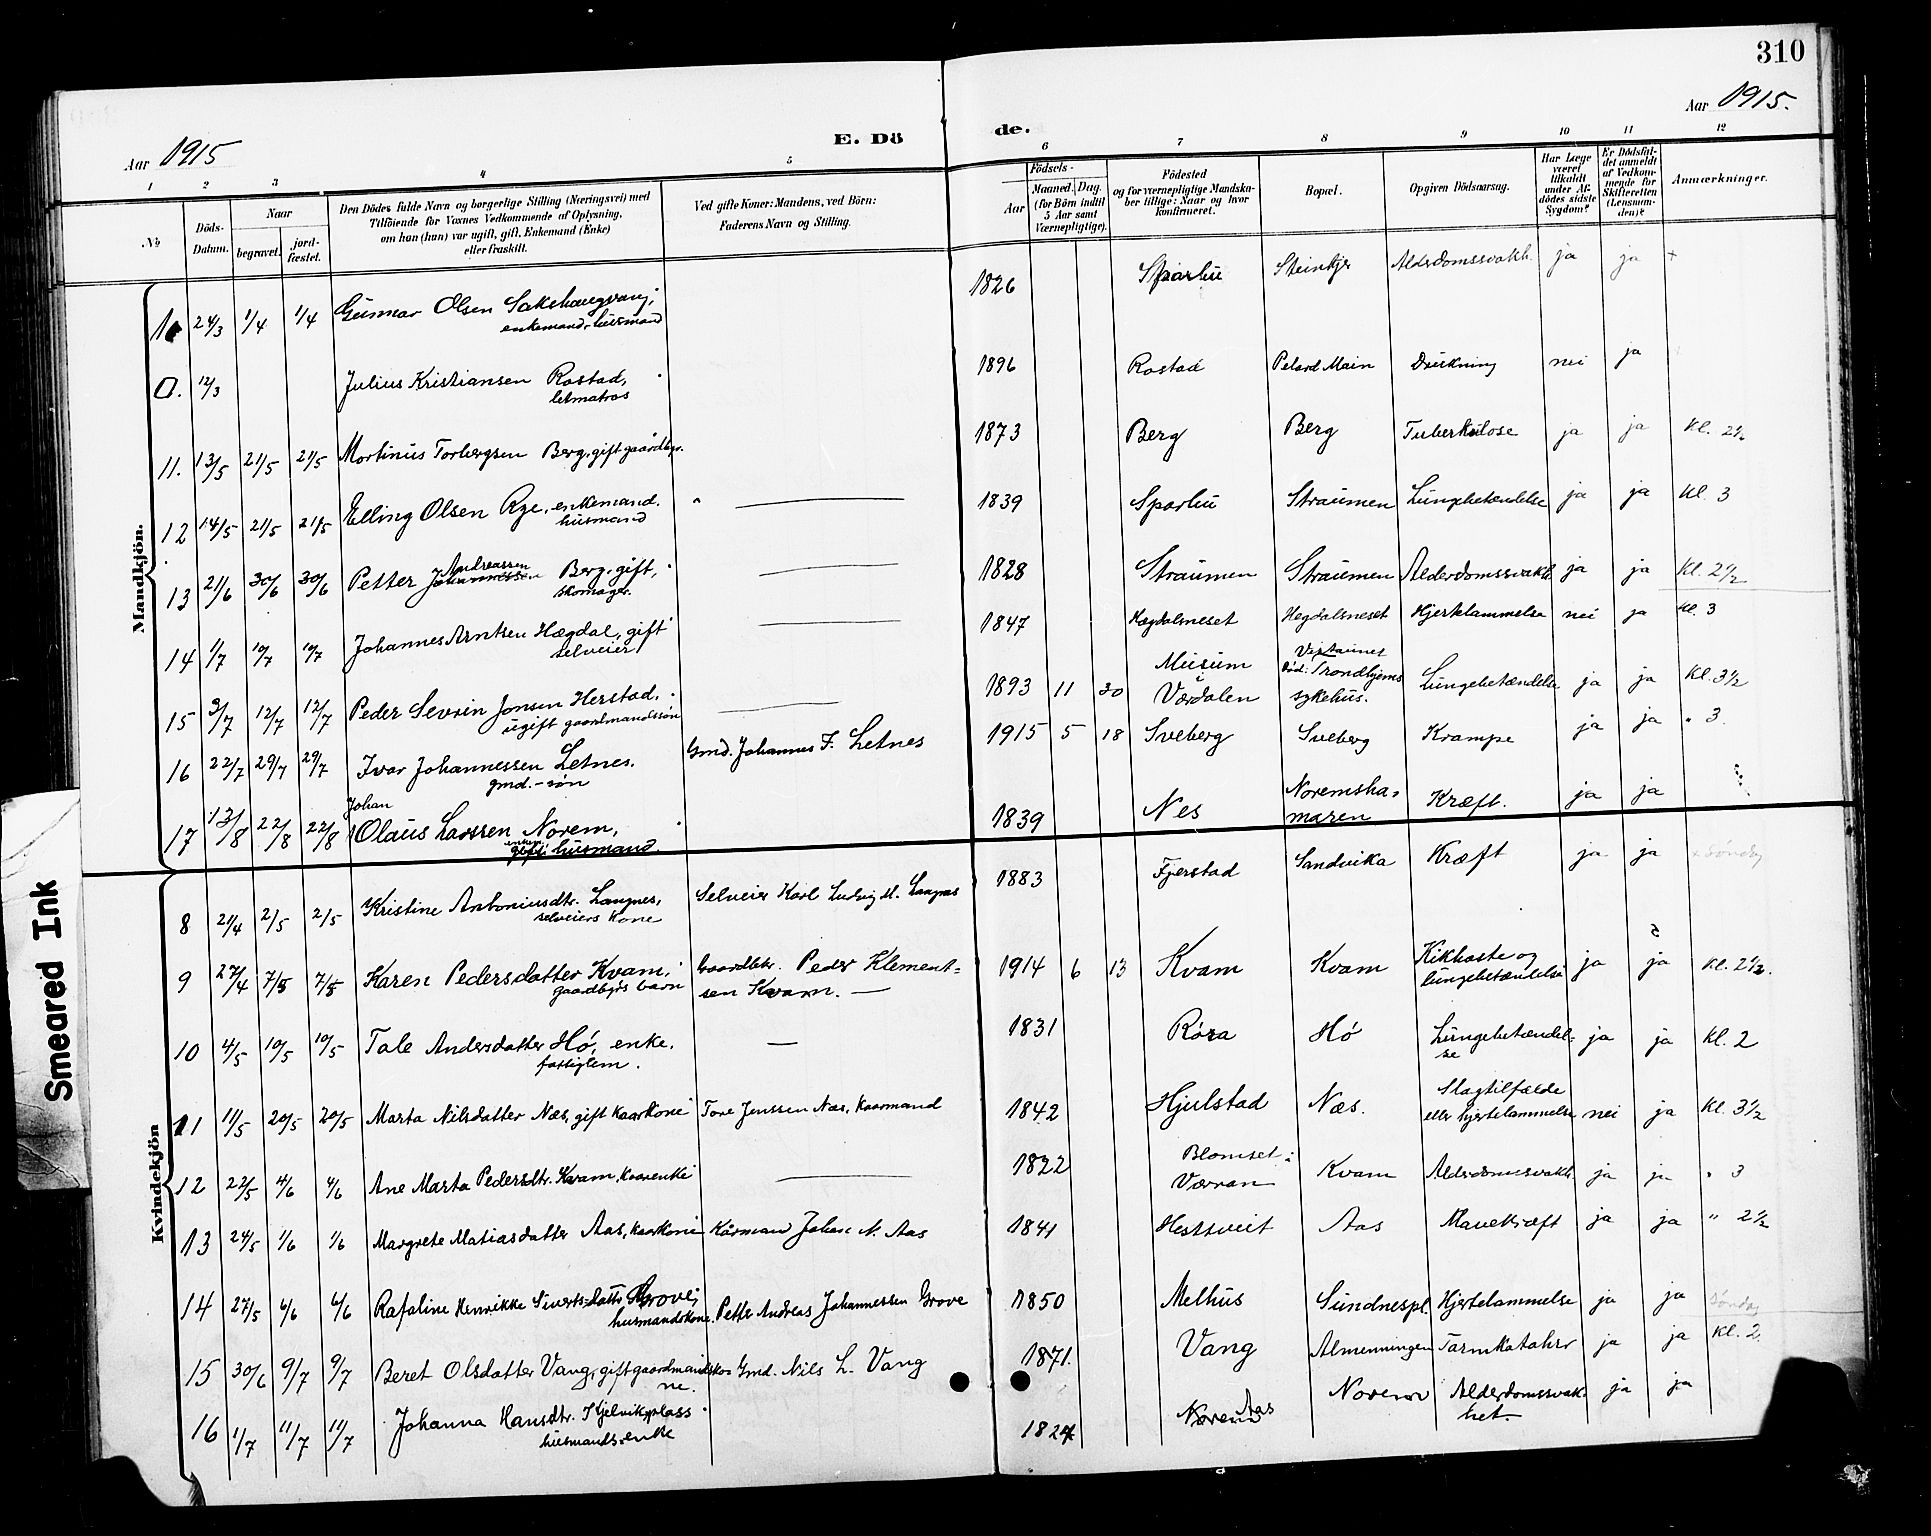 310
Aar 1915
E. Dö
de.
Aar 1915.
1 2 3 4 5 6 7 8 9 10 11 12
No
Döds-
Datum.
Naar
begravet.
jord-
fæstet.
Den Dödes fulde Navn og borgerlige Stilling (Næringsvei) med
Tilföiende for Voxnes Vedkommende af Oplysning,
om han (hun) var ugift, gift, Enkemand (Enke)
eller fraskilt.
Ved gifte Koner: Mandens, ved Börn:
Faderens Navn og Stilling.
Födsels-
Aar
Maaned. Dag.
(for Börn indtil
5 Aar samt
Værnepligtige).
Födested
og for værnepligtige Mandska-
ber tillige: Naar og hvor
konfirmeret.
Bopæl.
Opgiven Dödsaarsag.
Har Læge
været
tilkaldt
under Af-
dödes sidste
Sygdom?
Er Dödsfal-
det anmeldt
af Vedkom-
mende for
Skifteretten
(Lensman-
den)?
Anmærkninger.
Mandkjön.
10 24/3 1/4 1/4 Gunnar Olsen Sakshaugvang, 1826 Sparbu Steinkjer Alderdomssvakh. ja ja +
enkemand, husmand
0. 12/3 Julius Kristiansen Rostad, 1896 Rostad Drukning nei ja
letmatros
11. 13/5 21/5 21/5 Martinus Torbergsen Berg, gift gaardbr. 1873 Berg Berg Tuberkulose ja ja Kl. 2½
12 14/5 21/5 21/5 Elling Olsen Rye, enkemand. 1839 Sparbu Straumen Lungebetændelse ja ja Kl. 3
husmand
Andreassen
13 21/6 30/6 30/6 Petter Johannessen Berg, gift, 1828 Straumen Straumen Alderdomssvakh. ja ja Kl. 2½
skomager.
14 1/7 10/7 10/7 Johannes Arntsen Hægdal, gift 1847 Hægdalsneset Hegdalsneset Hjertelammelse nei ja Kl. 3
selveier
15 3/7 12/7 12/7 Peder Sevrin Jonsen Herstad, 1893 11 30 Musum i Værdalen død: Trondhjems sykehus. Lungebetændelse ja ja Kl. 3½
ugift gaardmandssøn
16 22/7 29/7 29/7 Ivar Johannessen Letnes. Gmd. Johannes F. Letnes 1915 5 18 Sveberg Sveberg Krampe ja ja " 3.
gmd.-søn
Johan
17 13/8 22/8 22/8 Olaus Larssen Norem, 1839 Nes Noremsha=maren Kræft. ja ja
enkem. gift. husmand.
Kvindekjön
8 21/4 2/5 2/5 Kristine Antoniusdtr. Langnes, Selveier Karl Ludvig M. Langnes 1883 Fjerstad Sandvika Kræft ja ja × Søndag
selveiers kone
9 27/4 7/5 7/5 Karen Pedersdatter Kvam, Gaardbr. Peder Klement=sen Kvam. 1914 6 13 Kvam Kvam Kikhoste og lungebetændelse ja ja Kl. 2½.
gaardbrs barn
10 4/5 10/5 10/5 Tale Andersdatter Hó, enke. 1831 Róra Hó Lungebetændel=se ja ja Kl. 2
fattiglem.
11 11/5 20/5 20/5 Marta Nilsdatter Næs, gift kaarkone Tore Jenssen Næs, Kaarmand 1842 Hjulstad Næs. Slagtilfælde eller hjertelammelse nei ja Kl. 3½
12 22/5 4/6 4/6 Ane Marta Pedersdtr. Kvam, Kaarenke 1822 Blomset i Værran Kvam Alderdomssvakh. ja ja " 3
13 24/5 1/6 1/6 Margrete Matiasdatter Aas, kaarkone Kårmand Johan N. Aas 1841 Hestsveit Aas Mavekræft ja ja " 2½
14 27/5 6/6 6/6 Rafaline Henrikke Siverts=dattr Grove, Petter Andreas Johannessen Grove 1850 Melhus Sundnespl. Hjertelammelse ja ja Søndag
husmandskone.
15 30/6 9/7 9/7 Beret Olsdatter Vang, gift gaardmandsko=ne. Gmd. Nils L. Vang 1871. Vang Almenningen Tarmkatahr ja ja Kl. 2.
16 1/7 11/7 11/7 Johanna Hansdtr. Skjelvikplass 1824 Norem Aas Norem Alderdomssvak=het. ja ja
husmands-enke
Smeared Ink